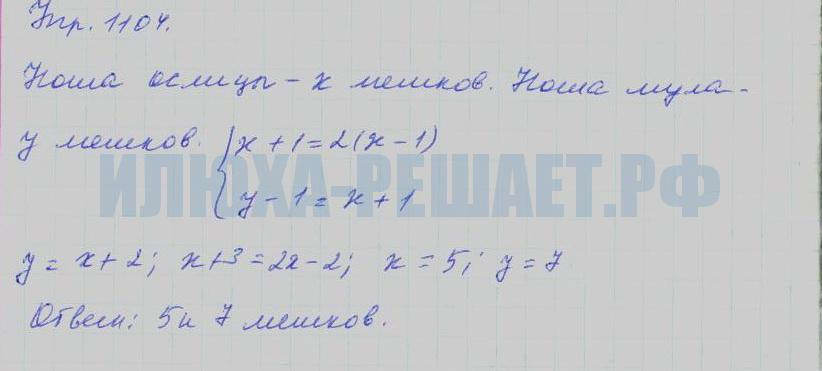 Упр. 1104.
Ноша ослицы - x мешков. Ноша мула -
y мешков. { x + 1 = 2(x - 1)
y - 1 = x + 1
ИЛЮХА-РЕШАЕТ.РФ
y = x + 2; x + 3 = 2x - 2; x = 5; y = 7
Ответ: 5 и 7 мешков.